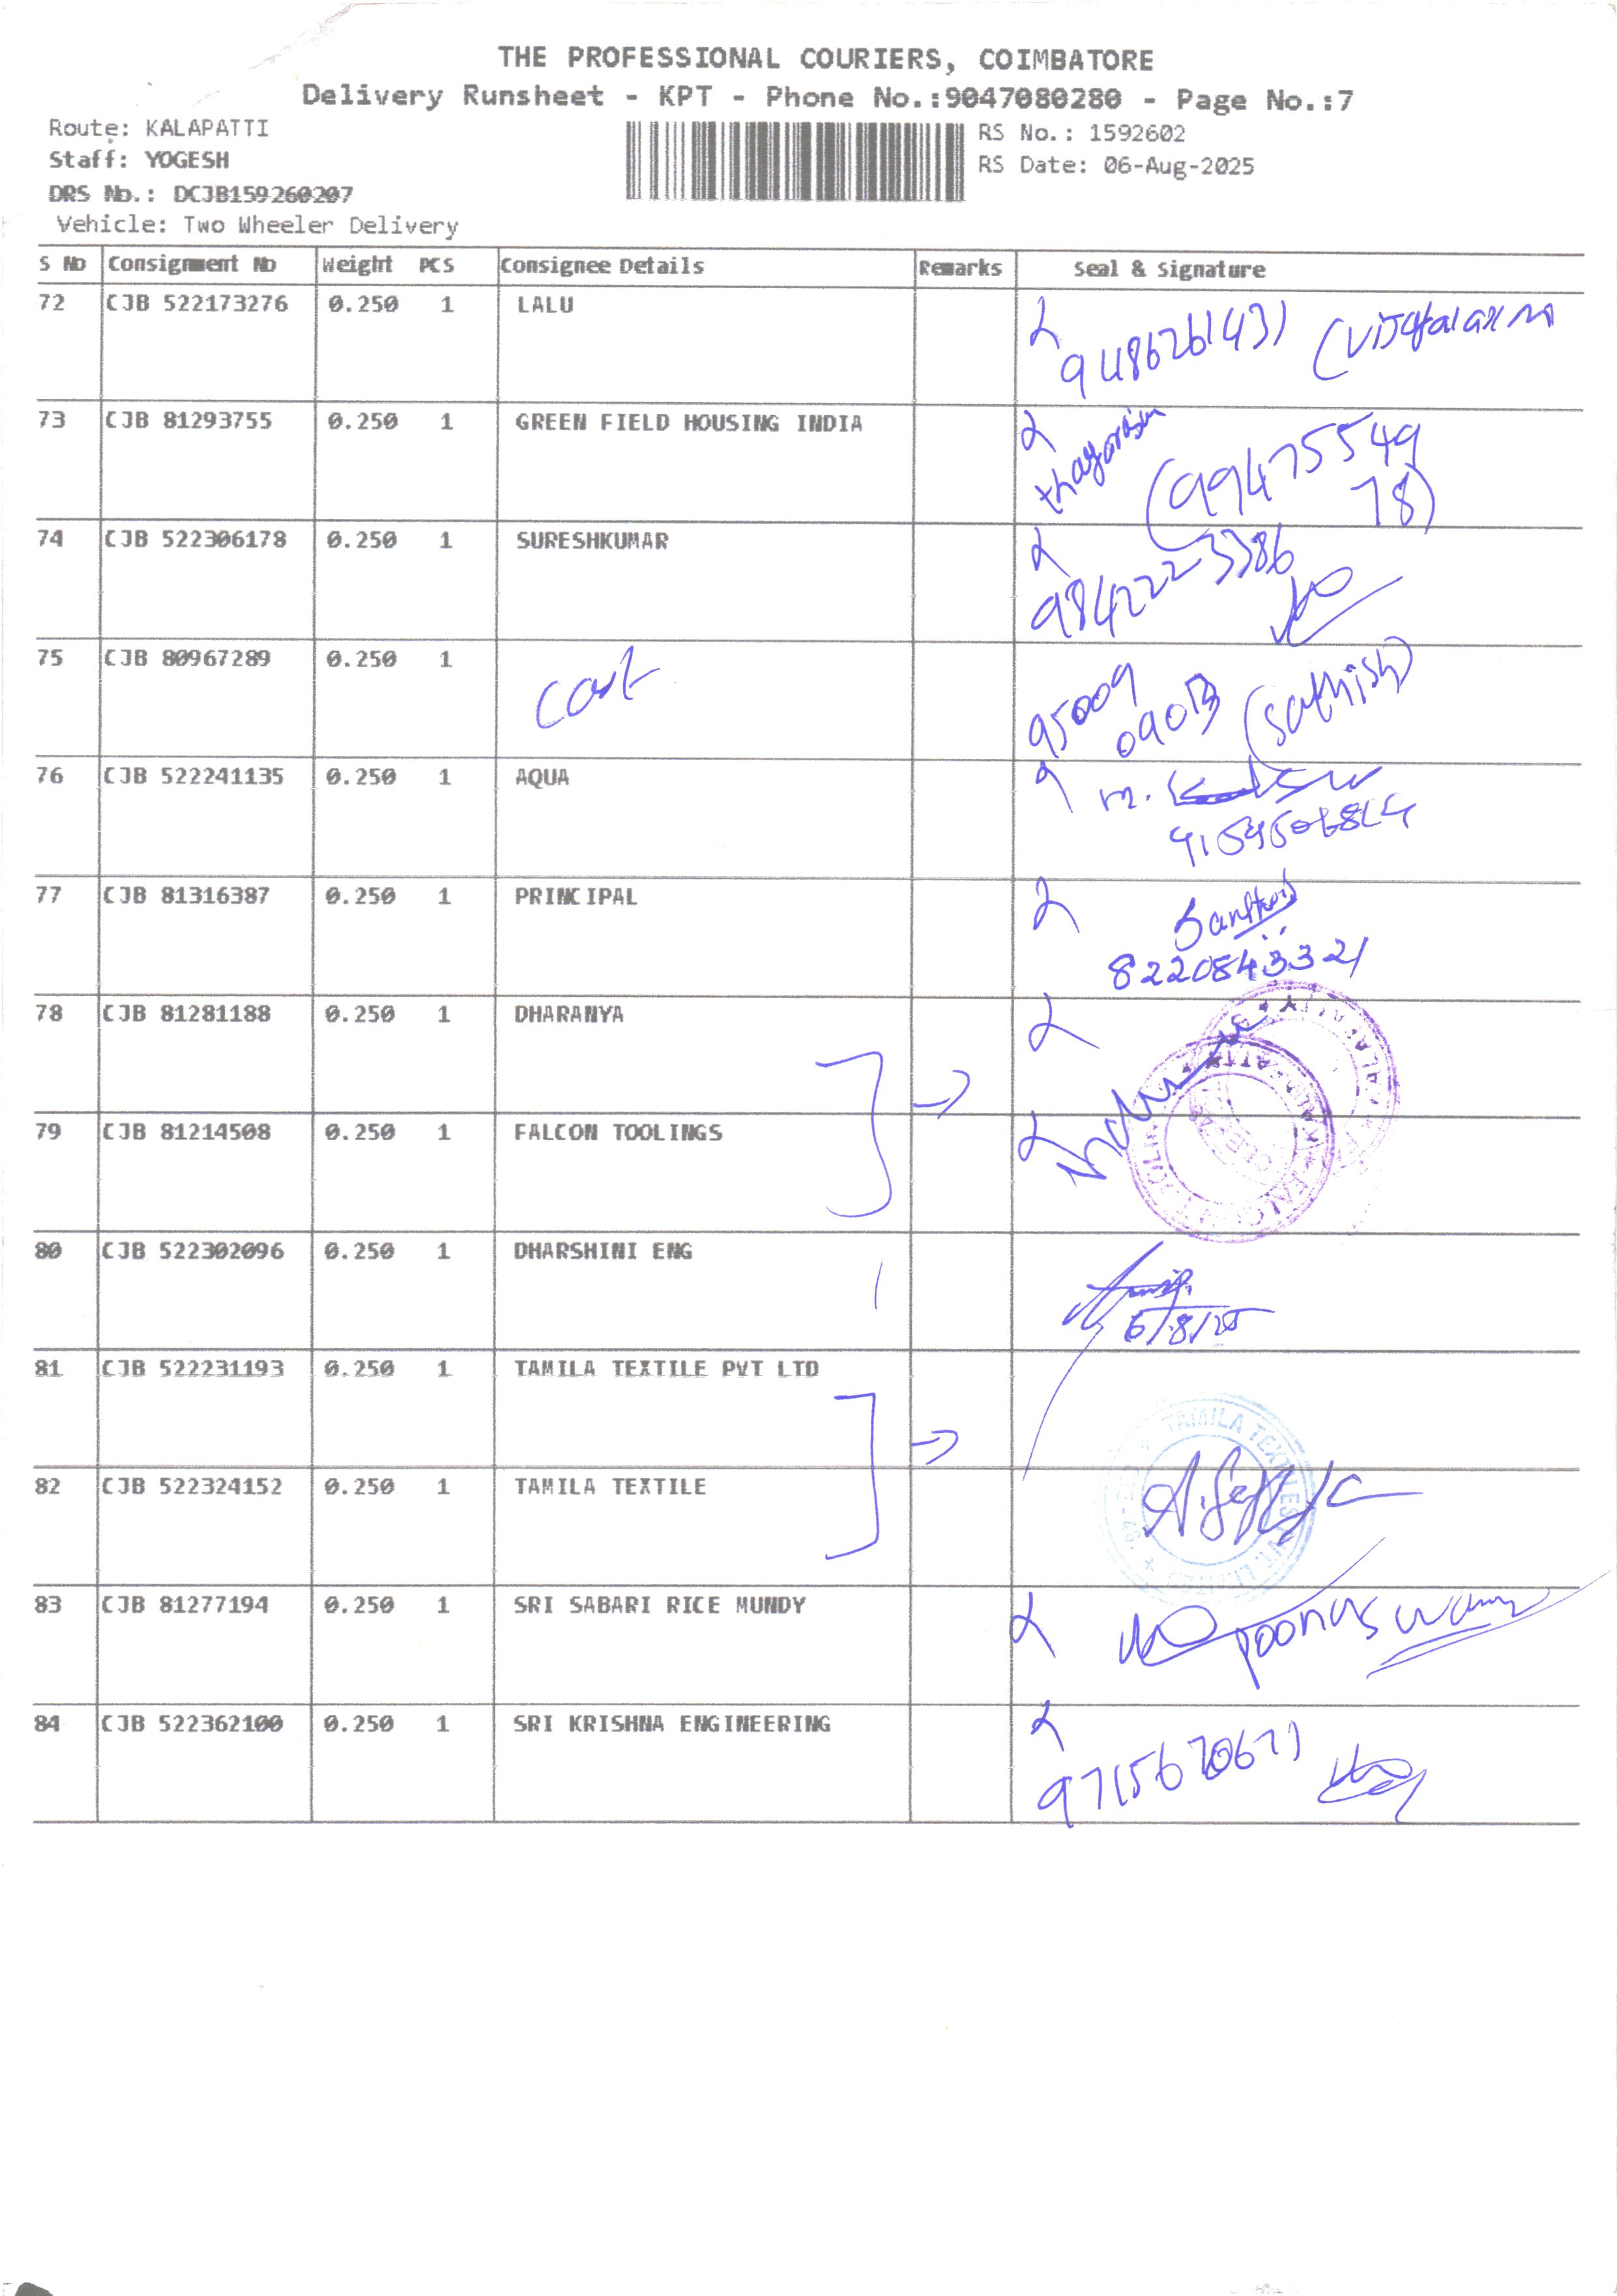 THE PROFESSIONAL COURIERS, COIMBATORE
Delivery Runsheet - KPT - Phone No.:9047080280 - Page No.:7
Route: KALAPATTI
RS No.: 1592602
Staff: YOGESH
RS Date: 06-Aug-2025
DRS No.: DCJB159260207
Vehicle: Two Wheeler Delivery
S No Consignment No Weight PCS Consignee Details Remarks Seal & Signature
72 CJB 522173276 0.250 1 LALU
9486261431
73 CJB 81293755 0.250 1 GREEN FIELD HOUSING INDIA
(99475549
78)
74 CJB 522306178 0.250 1 SURESHKUMAR
9842223386
75 CJB 80967289 0.250 1
95009
(Sathish)
76 CJB 522241135 0.250 1 AQUA
77 CJB 81316387 0.250 1 PRINCIPAL
8220843321
78 CJB 81281188 0.250 1 DHARANYA
79 CJB 81214508 0.250 1 FALCON TOOLINGS
80 CJB 522302096 0.250 1 DHARSHINI ENG
6/8/25
81 CJB 522231193 0.250 1 TAMILA TEXTILE PVT LTD
TAMILA TEXTILES
82 CJB 522324152 0.250 1 TAMILA TEXTILE
83 CJB 81277194 0.250 1 SRI SABARI RICE MUNDY
84 CJB 522362100 0.250 1 SRI KRISHNA ENGINEERING